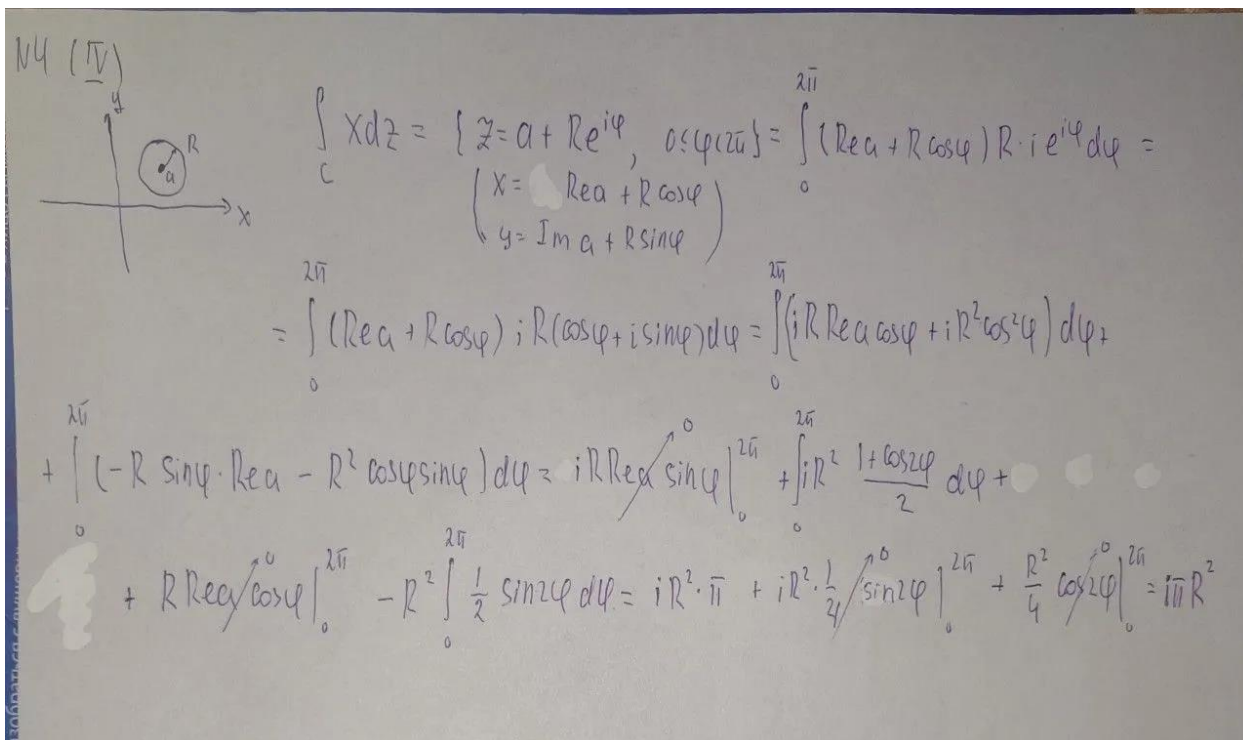 N4 (IV)
y
R
a
x
∫_C x dz = { z = a + Re^{iφ}, 0≤φ<2π } = ∫_0^{2π} (Re a + R cosφ) R·i e^{iφ} dφ =
( x = Re a + R cosφ
y = Im a + R sinφ )
= ∫_0^{2π} (Re a + R cosφ) i R (cosφ + i sinφ) dφ = ∫_0^{2π} (i R Re a cosφ + i R² cos²φ) dφ +
+ ∫_0^{2π} (-R sinφ · Re a - R² cosφ sinφ) dφ = i R Re a sinφ |_0^{2π} → 0 + ∫_0^{2π} i R² (1 + cos2φ)/2 dφ +
+ R Re a cosφ |_0^{2π} → 0 - R² ∫_0^{2π} 1/2 sin2φ dφ = i R² · π + i R² · 1/4 sin2φ |_0^{2π} → 0 + R²/4 cos2φ |_0^{2π} → 0 = iπR²